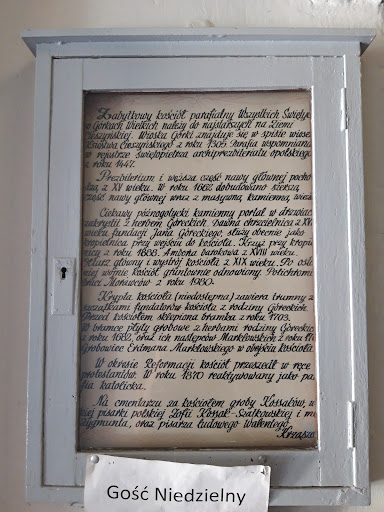 Zabytkowy kościół parafialny Wszystkich Święty
w Górkach Wielkich należy do najstarszych na Ziemi
Cieszyńskiej. Wioska Górki znajduje się w spisie wiosek
Księstwa Cieszyńskiego z roku 1305. Parafia wspomniana
w rejestrze świętopietrza archiprezbiteriatu opolskiego
z roku 1447.
Prezbiterium i węższa część nawy głównej pocho
z XV wieku. W roku 1662 dobudowano szerszą
część nawy głównej wraz z masywną, kamienną, wieżą
Ciekawy późnogotycki kamienny portal w drzwiach
zakrystii z herbem Góreckich. Dawna chrzcielnica z XV
wieku, fundacji Jana Góreckiego, służy obecnie jako
kropielnica przy wejściu do kościoła. Krzyż przy kropi
z roku 1688. Ambona barokowa z XVIII wieku.
Ołtarz główny i wystrój kościoła z XIX wieku. Po osta
niej wojnie kościół gruntownie odnowiony. Polichromia
z roku 1980.
Krypta kościoła (niedostępna) zawiera trumny z
szczątkami fundatorów kościoła z rodziny Góreckich.
Przed kościołem sklepiona bramka z roku 1703.
W bramce płyty grobowe z herbami rodziny Góreckich
z roku 1662, oraz ich następców Marklowskich z roku
Grobowiec Erdmana Marklowskiego w obejściu kościoła
W okresie Reformacji kościół przeszedł w ręce
protestantów. W roku reaktywowany jako pa
fia katolicka.
Na cmentarzu za kościołem groby Kossaków, w
tej pisarki polskiej Zofii Kossak-Szatkowskiej i m
Zygmunta, oraz pisarza ludowego Walentego
Krząszcz
Gość Niedzielny